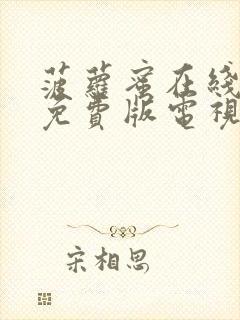 菠蘿蜜在綫
免費版電視
宋相思